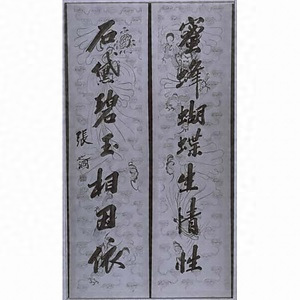 蜜蜂蝴蝶生情性
石黛碧玉相因依
張謇